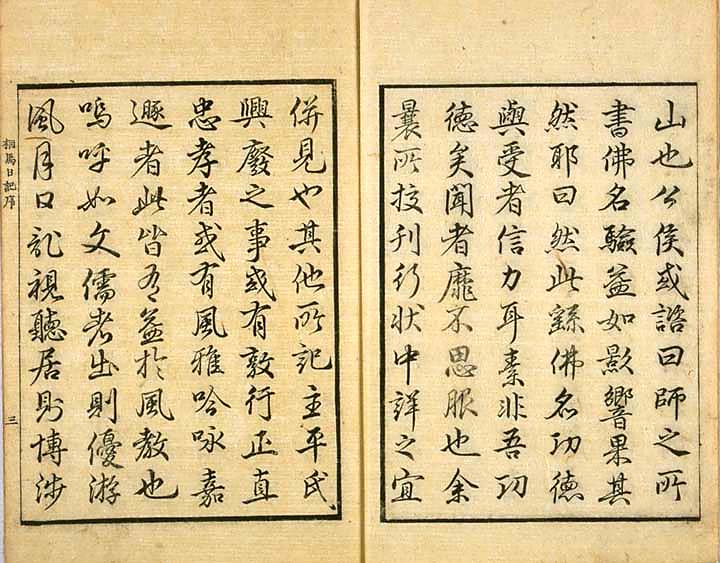 山也公侯或諮曰師之所
書佛名驗益如影響果其
然耶曰然此繇佛名功德
與受者信力耳素非吾功
德矣聞者靡不思服也余
曩所授刊行狀中詳之宜
併見也其他所記主平氏
興廢之事或有敦行正直
忠孝者或有風雅吟咏嘉
遯者此皆有益於風教也
嗚呼如文儒者出則優游
風月口訟視聽居則博涉
相馬日記序
三